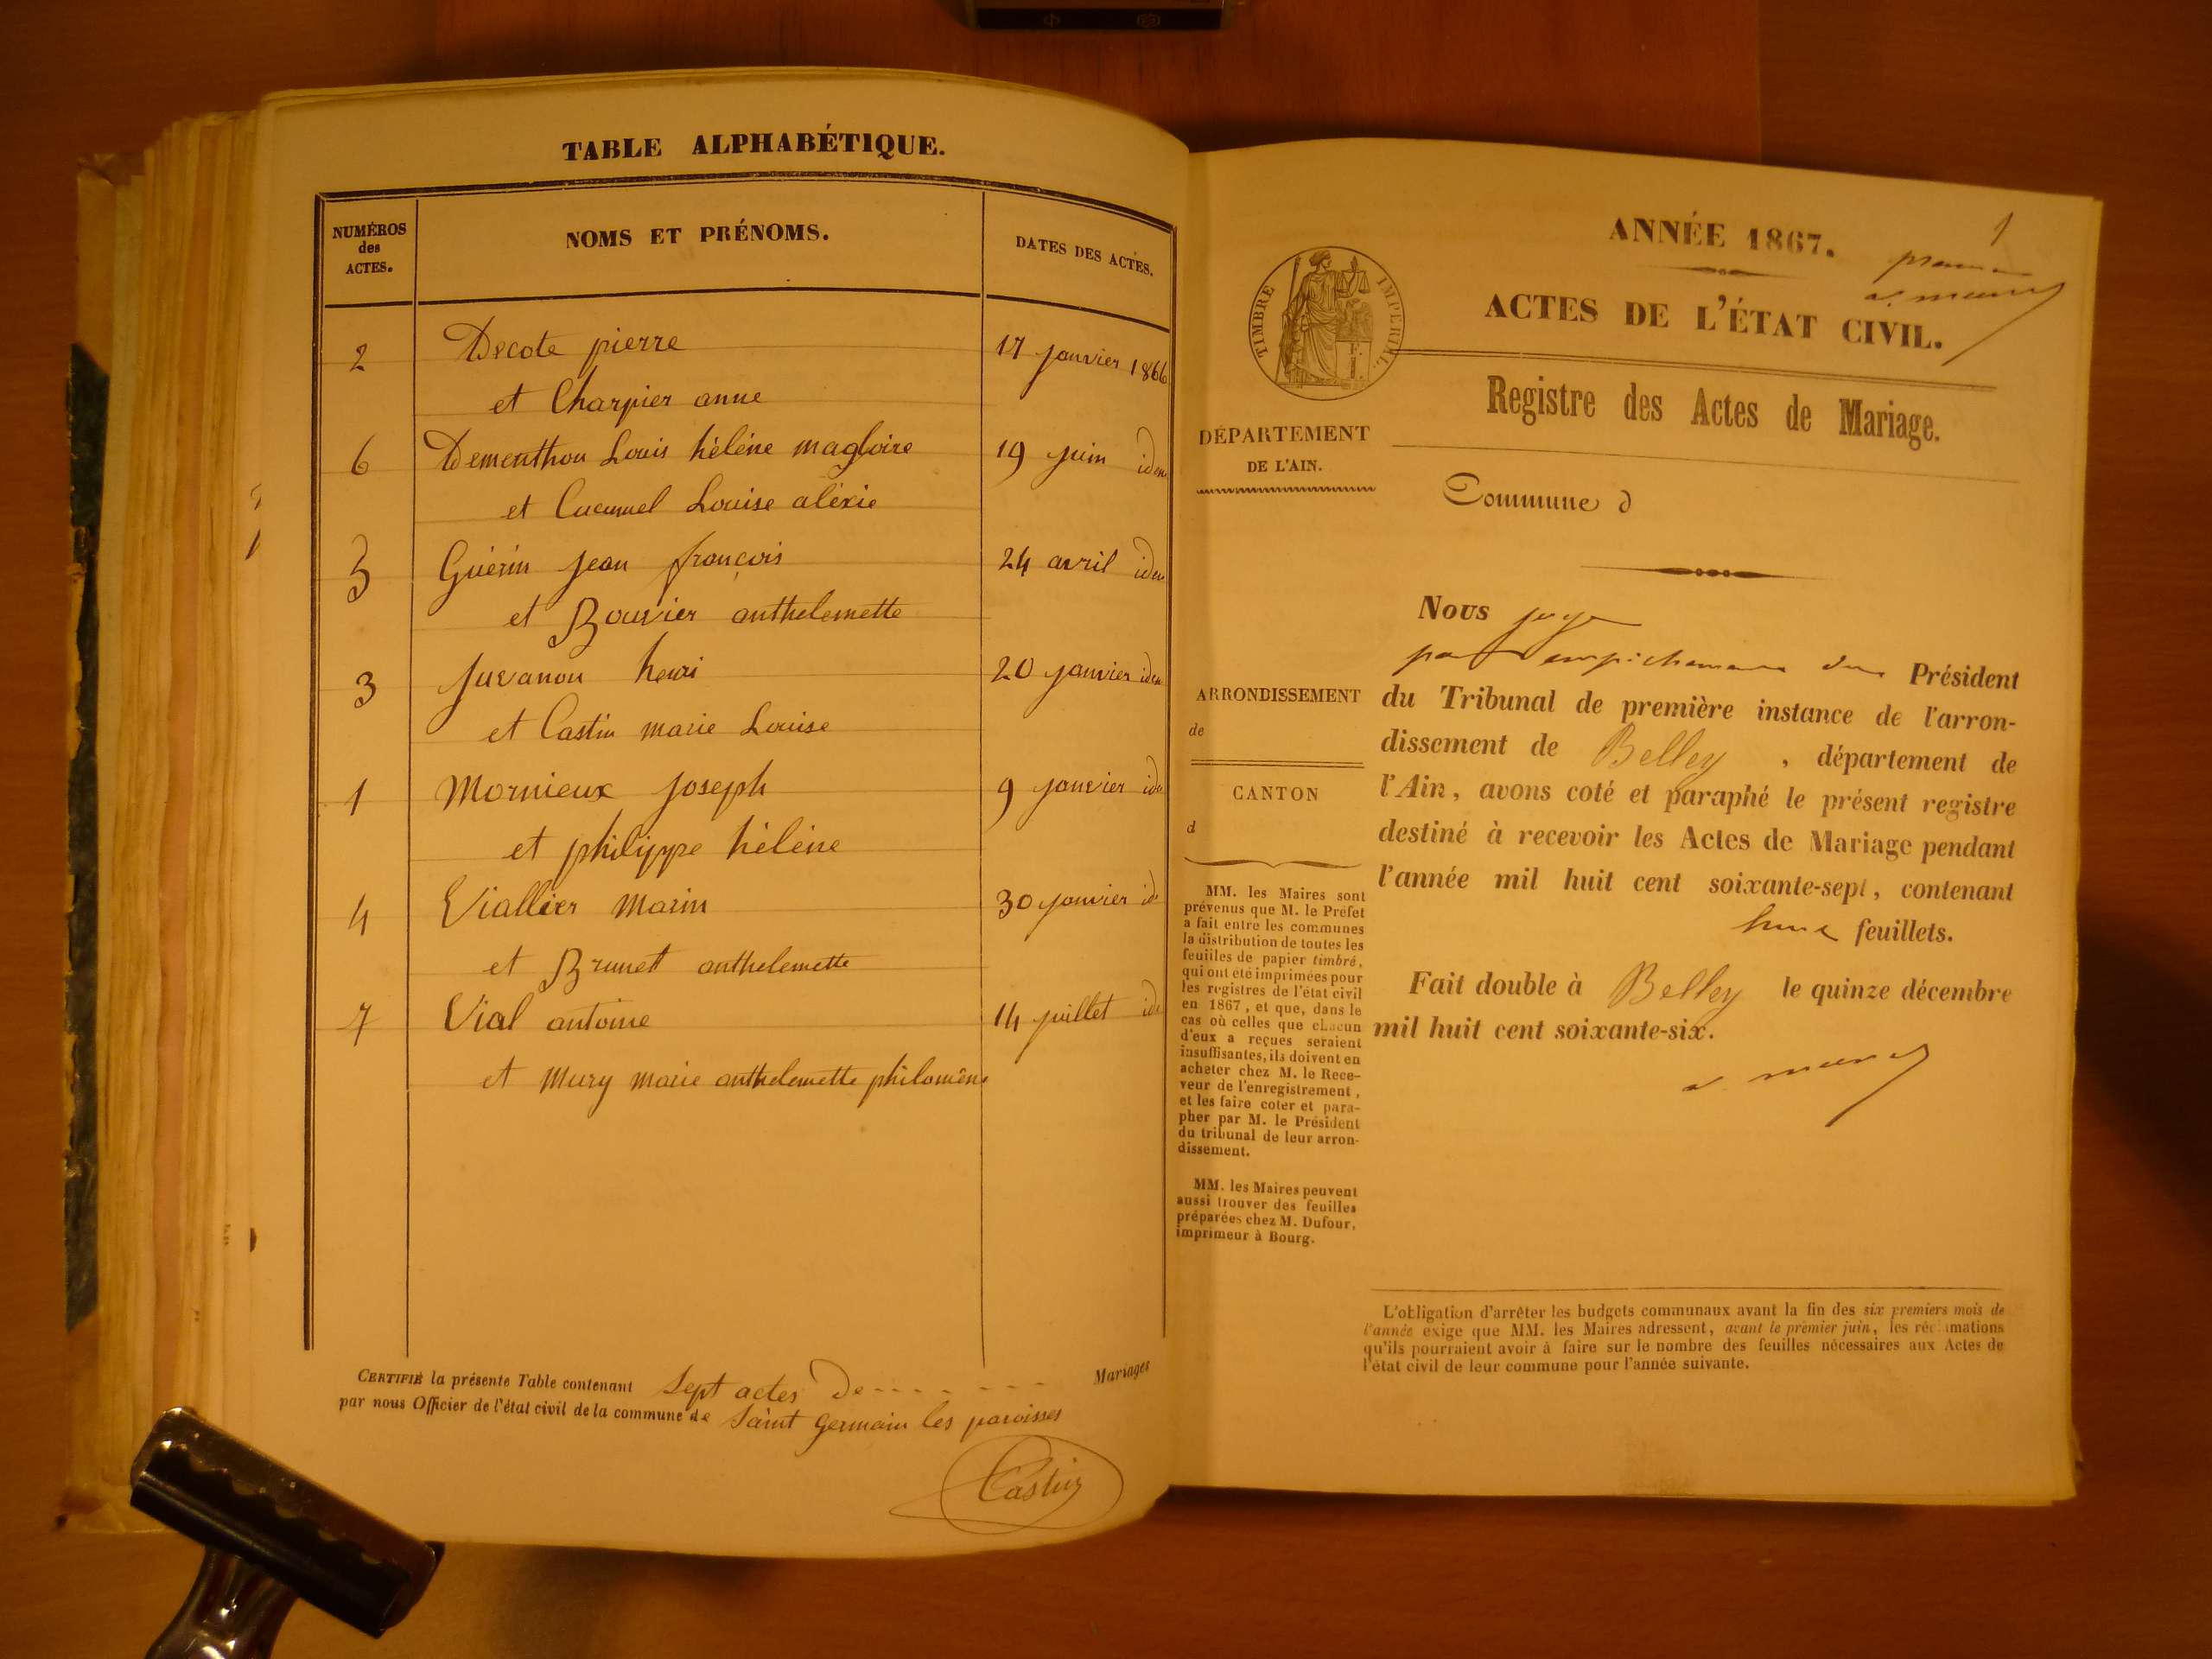 TABLE ALPHABÉTIQUE.
NUMÉROS
des
ACTES.
NOMS ET PRÉNOMS.
DATES DES ACTES.
2 Decote pierre 17 janvier 1866
et Charpier anne
6 Dementhon Louis hélène magloire 19 juin idem
et Cucumel Louise aléxie
5 Guérin jean françois 24 avril idem
et Bouvier anthelemette
3 Juvanon henri 20 janvier idem
et Castin marie Louise
1 Mornieux joseph 9 janvier idem
et philippe hélène
4 Viallier marin 30 janvier id
et Brunet anthelemette
7 Vial antoine 14 juillet id
et Mury marie anthelemette philomène
CERTIFIÉ la présente Table contenant Sept actes De Mariages
par nous Officier de l'état civil de la commune de Saint germain les paroisses
Castin
1
ANNÉE 1867.
ACTES DE L'ÉTAT CIVIL.
TIMBRE IMPÉRIAL
Registre des Actes de Mariage.
DÉPARTEMENT
DE L'AIN.
Commune d
ARRONDISSEMENT
de
CANTON
d
MM. les Maires sont
prévenus que M. le Préfet
a fait entre les communes
la distribution de toutes les
feuilles de papier timbré,
qui ont été imprimées pour
les registres de l'état civil
en 1867, et que, dans le
cas où celles que chacun
d'eux a reçues seraient
insuffisantes, ils doivent en
acheter chez M. le Rece-
veur de l'enregistrement,
et les faire coter et para-
pher par M. le Président
du tribunal de leur arron-
dissement.
MM. les Maires peuvent
aussi trouver des feuilles
préparées chez M. Dufour,
imprimeur à Bourg.
Nous juge
par empêchement du Président
du Tribunal de première instance de l'arron-
dissement de Belley, département de
l'Ain, avons coté et paraphé le présent registre
destiné à recevoir les Actes de Mariage pendant
l'année mil huit cent soixante-sept, contenant
feuillets.
Fait double à Belley le quinze décembre
mil huit cent soixante-six.
L'obligation d'arrêter les budgets communaux avant la fin des six premiers mois de
l'année exige que MM. les Maires adressent, avant le premier juin, les réclamations
qu'ils pourraient avoir à faire sur le nombre des feuilles nécessaires aux Actes de
l'état civil de leur commune pour l'année suivante.